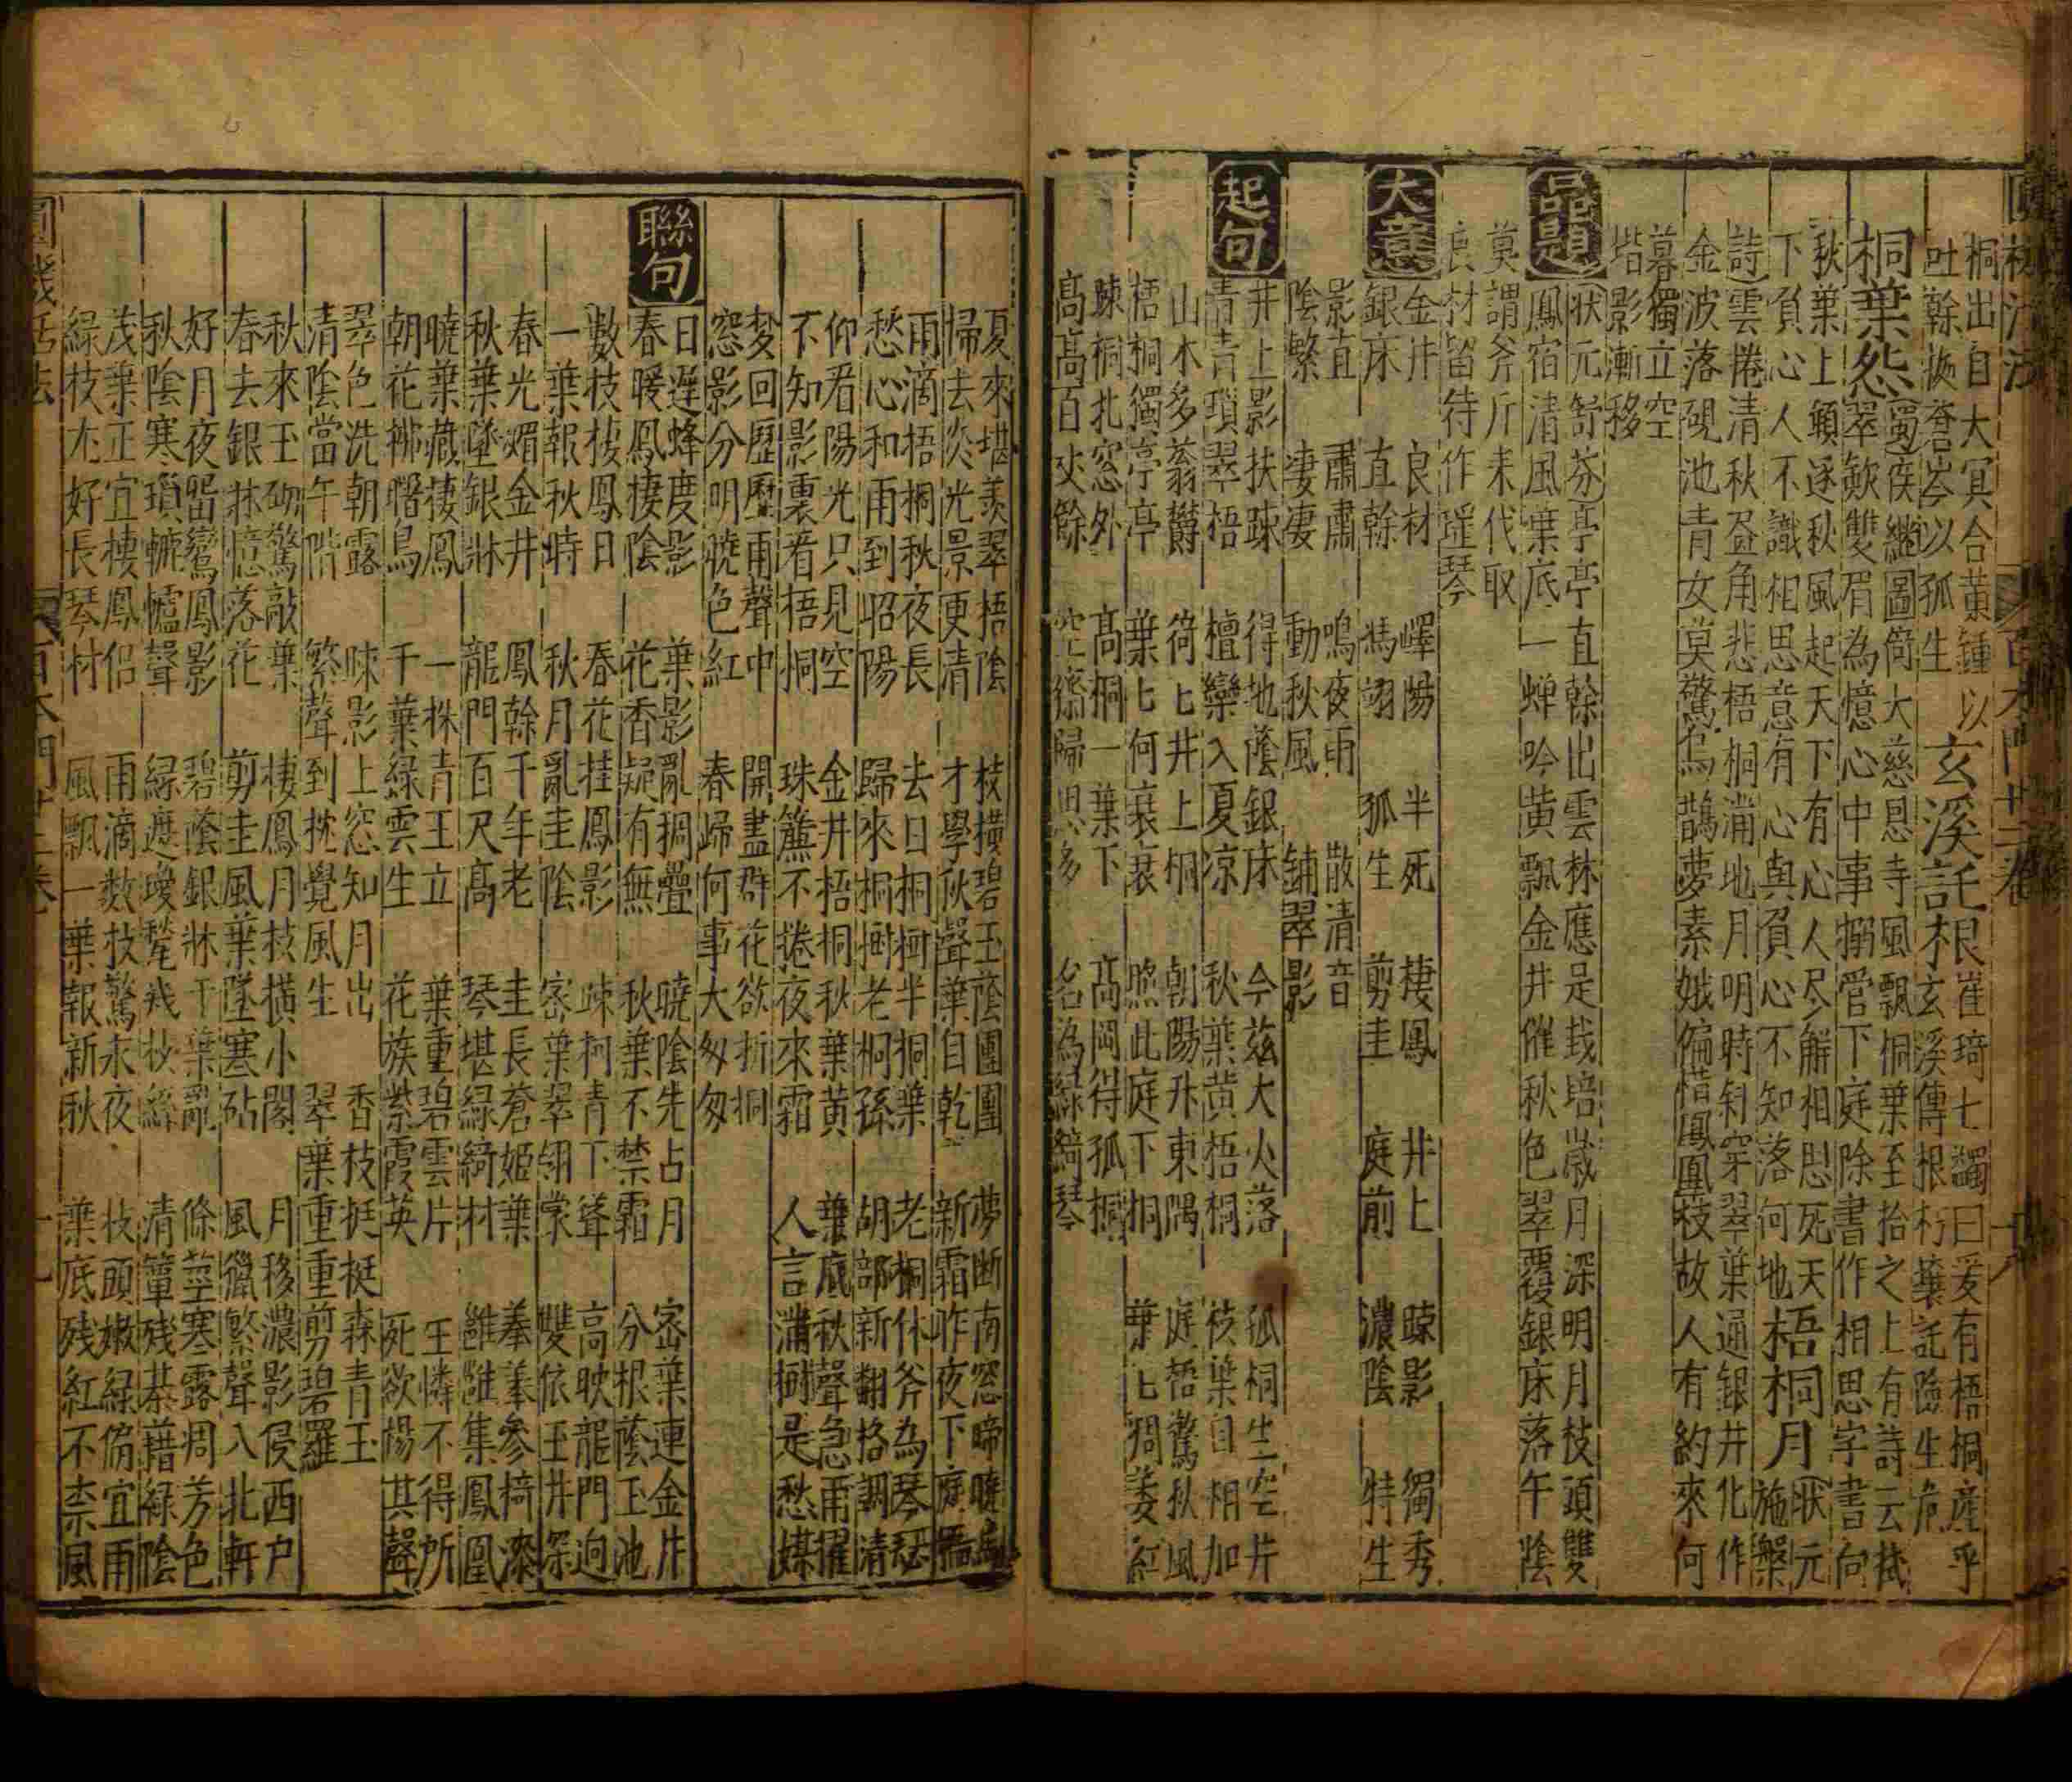 桐出自大冥合黄鍾以玄溪託根崔琦七蠲曰爰有梧桐產乎
吐幹據蒼岑以孤生 玄溪傳根朽壤託險生危
桐葉怨蜀侯繼圖倚大慈恩寺風飄桐葉至拾之上有詩云拭
翠歛雙眉為憶心中事搦管下庭除書作相思字書向
秋葉上願逐秋風起天下有心人尽解相思死天
下負心人不識相思意有心與負心不知落何地梧桐月狀元施槃
詩雲捲清秋盈角悲梧桐滿地月明時斜穿翠葉通銀井化作
金波落硯池青女莫驚烏鵲夢素娥偏惜鳳凰枝故人有約來何
暮獨立空
堦影漸移
品題
狀元舒芬亭亭直幹出雲林應是栽培歲月深明月枝頭雙
鳳宿清風葉底一蟬吟黄飄金井催秋色翠覆銀床落午陰
莫謂斧斤來代取
良材留待作瑶琴
大意
金井 良材 嶧陽 半死 棲鳳 井上 踈影 獨秀
銀床 直幹 馮翊 孤生 剪圭 庭前 濃陰 特生
影直 肅肅 鳴夜雨 散清音
陰繁 凄凄 動秋風 鋪翠影
起句
井上影扶踈 得地蔭銀床 今茲大火落 孤桐生空井
青青瑣翠梧 檀欒入夏凉 秋葉黄梧桐 枝葉自相加
山木多蓊欝 筍七井上桐 朝陽升東隅 庭梧驚秋風
梧桐獨亭亭 葉七何衰衰 煦此庭下桐 葉七猗萎紅
踈桐北窓外 高桐一葉下 高岡得孤桐
高高百丈餘 空齋歸思多 名為綠綺琴
夏來堪羡翠梧陰 枝横碧玉蔭團團 夢断南窓啼曉
掃去炎光景更清 才學秋聲葉自乾 新霜昨夜下庭
雨滴梧桐秋夜長 去日桐柯半桐葉 老桐休斧為琴瑟
愁心和雨到昭陽 歸來桐樹老桐孫 胡部新翻格調清
仰看陽光只見空 金井梧桐秋葉黄 葉底秋聲急雨催
不知影裏看梧桐 珠簾不捲夜來霜 人言滿樹是愁媒
梦回歷歷雨聲中 開盡群花欲折桐
窓影分明曉色紅 春歸何事大匆匆
聯句
日遲蜂度影 葉影亂稠疊 曉陰先占月 密葉連金井
春暖鳳棲陰 花香疑有無 秋葉不禁霜 分根蔭玉池
數枝棲鳳日 春花挂鳳影 踈柯青下聳 高映龍門迥
一葉報秋時 秋月亂圭陰 密葉翠翎棠 雙依玉井深
春光媚金井 鳳幹千年老 圭長蒼姬葉 菶菶參椅漆
秋葉墜銀牀 龍門百尺高 琴堪綠綺材 雝雝集鳳凰
曉葉藏棲鳳 一株青玉立 葉重碧雲片 王憐不得所
朝花拂曙烏 千葉綠雲生 花族紫霞英 死欲揚其聲
翠色洗朝露 踈影上窓知月出 香枝挺挺森青玉
清陰當午階 繁聲到枕覺風生 翠葉重重剪碧羅
秋來玉砌驚敲葉 棲鳳月枝横小閣 月移濃影侵西户
春去銀牀憶落花 剪圭風葉墜寒砧 風獵繁聲入北軒
好月夜留鸞鳳影 碧蔭銀牀干葉亂 條莖寒露凋芳色
秋陰寒瑣轆轤聲 綠遮瓊甃幾枝絲 清簟殘棊藉綠陰
茂葉正宜棲鳳侣 雨滴数枝驚永夜 枝頭嫩綠偏宜雨
綠枝尤好長琴材 風飄一葉報新秋 葉底残紅不柰風